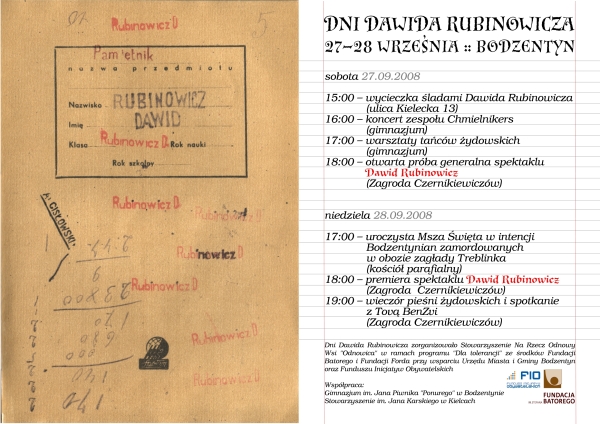 20
Rubinowicz D
5
Pamiętnik
nazwa przedmiotu
Nazwisko RUBINOWICZ
Imię DAWID
Klasa Rubinowicz D. Rok nauki
Rok szkolny
Rubinowicz D
Rubinowicz D
A. CISŁOWSKI.
Rubinowicz D
Rubinowicz D
Rubinowicz D
Rubinowicz D
DNI DAWIDA RUBINOWICZA
27–28 WRZEŚNIA :: BODZENTYN
sobota 27.09.2008
15:00 – wycieczka śladami Dawida Rubinowicza
(ulica Kielecka 13)
16:00 – koncert zespołu Chmielnikers
(gimnazjum)
17:00 – warsztaty tańców żydowskich
(gimnazjum)
18:00 – otwarta próba generalna spektaklu
Dawid Rubinowicz
(Zagroda Czernikiewiczów)
niedziela 28.09.2008
17:00 – uroczysta Msza Święta w intencji
Bodzentynian zamordowanych
w obozie zagłady Treblinka
(kościół parafialny)
18:00 – premiera spektaklu Dawid Rubinowicz
(Zagroda Czernikiewiczów)
19:00 – wieczór pieśni żydowskich i spotkanie
z Tovą BenZvi
(Zagroda Czernikiewiczów)
Dni Dawida Rubinowicza zorganizowało Stowarzyszenie Na Rzecz Odnowy
Wsi "Odnowica" w ramach programu "Dla tolerancji" ze środków Fundacji
Batorego i Fundacji Forda przy wsparciu Urzędu Miasta i Gminy Bodzentyn
oraz Funduszu Inicjatyw Obywatelskich
Współpraca:
Gimnazjum im. Jana Piwnika "Ponurego" w Bodzentynie
Stowarzyszenie im. Jana Karskiego w Kielcach
FIO
FUNDACJA
BATOREGO